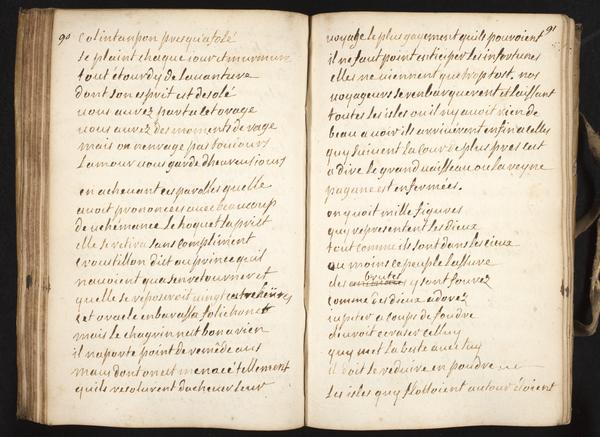 90
Colintanpon presqu'afolé
se plaint chaque jour et murmure
tout étourdy de lauanture
dont son esprit est desolé
vous aurez part a cet orage
vous aurez des moments de rage
mais on n'enrage pas toujours
l'amour vous garde d'heureux jours
en acheuant ces parolles quelle
auoit prononcées auec beaucoup
de vehemance le hoquet la prist
elle se retira sans compliment
croustillon dit au prince qu'il
nauoient qua s'en retourner et
quelle se reposeroit vingt
cet oracle enbarassa folichon
mais le chagrin n'est bon a rien
il n'aporte point de remede aux
maux dont on est menacé tellement
quils resolurent d'acheuer leur
91
uoyage le plus gayement quils pouroient
il ne faut point enticiper les infortunes
elles ne uiennent que trop tost. nos
uoyageurs se renbarquerent et laissant
toutes les isles ou il ny auoit rien de
beau a uoir ils arriuerent enfin a celles
quy suiuent la cour de plus pres cest
a dire le grand uaisseau ou la reyne
pagane est enfermée.
on y uoit mille figures
quy representent les dieux
tout comme ils sont dans les cieux
ou moins ce peuple l'assure
des brutes y sont fourez
comme des dieux adorez
jupiter a coups de foudre
deuroit ecraser celluy
quy met la beste auec luy
il doit le reduire en poudre
les isles quy flottoient autour étoient